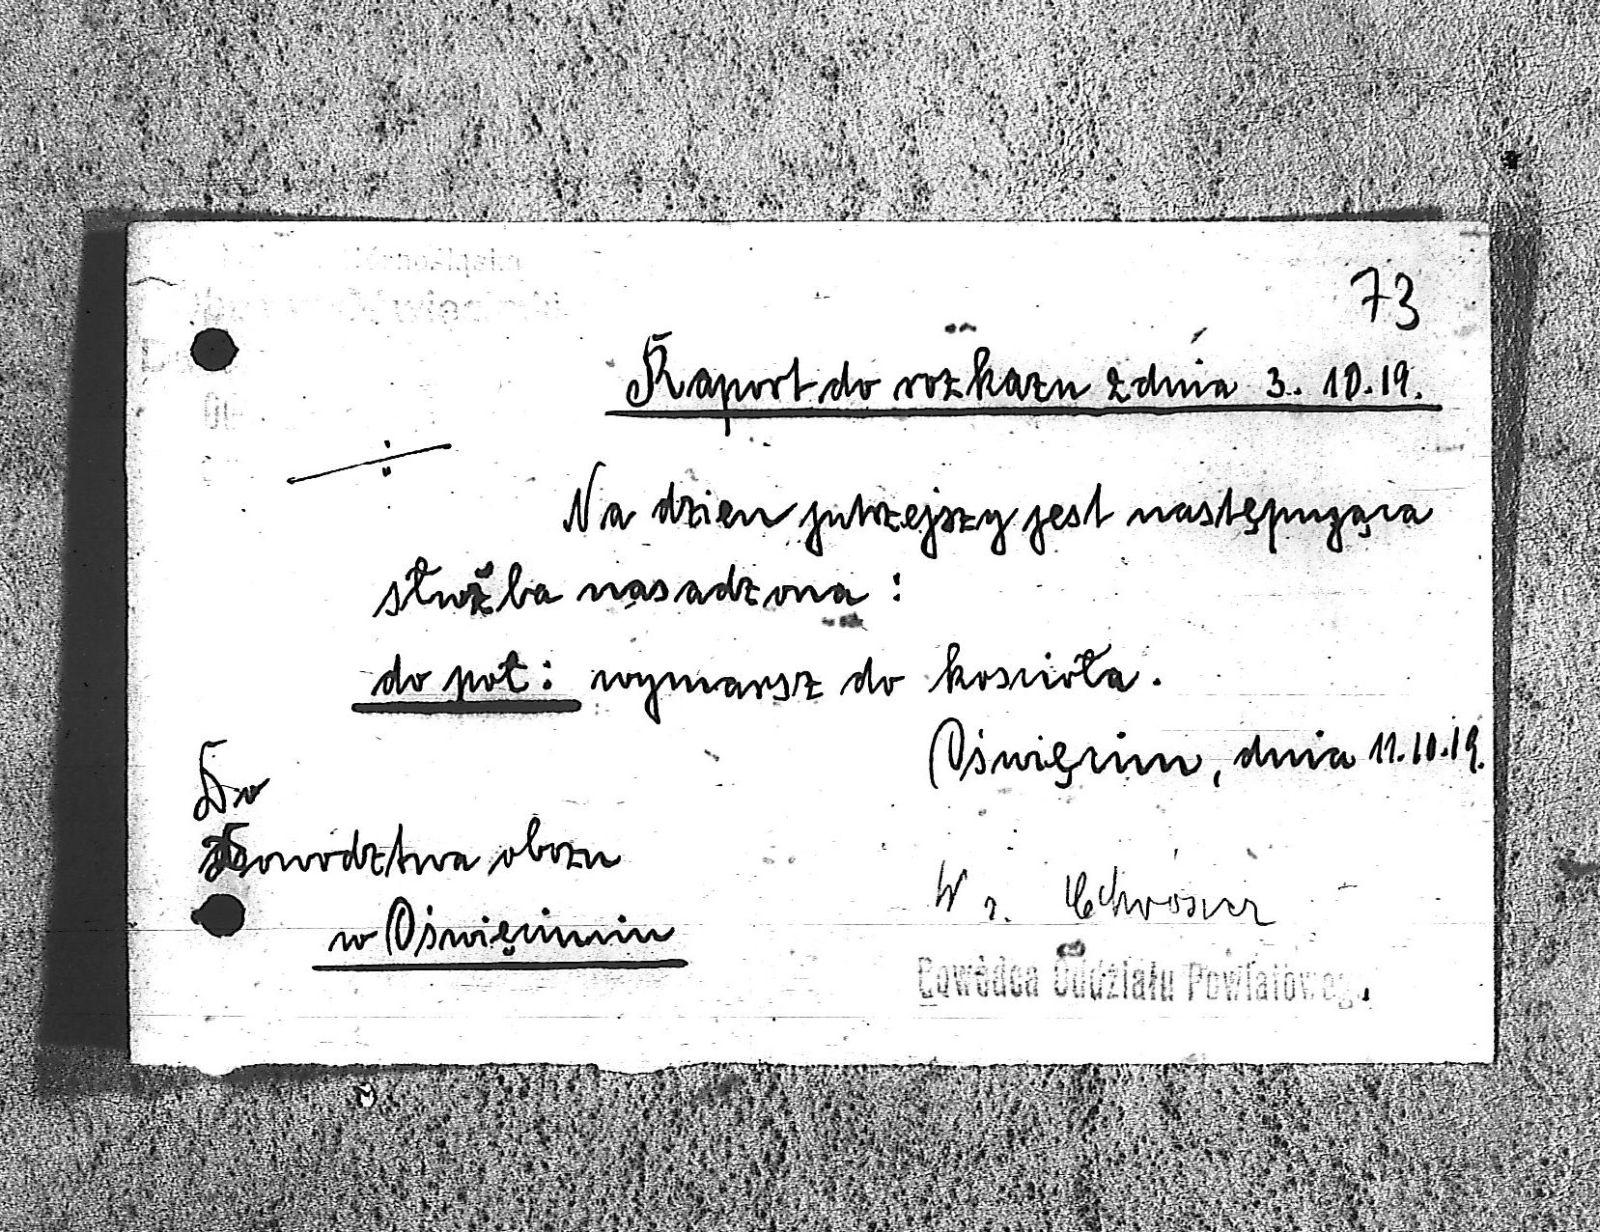 73
Raport do rozkazu z dnia 3. 10. 19.
Na dzien jutrzejszy jest następująca
służba nasadzona :
do poł : wymarsz do koscioła .
Oświęcim , dnia 11.10.19.
Do
Dowodztwa obozu
w Oświęcimiu
W z.
Dowódca Oddziału Powiatowego